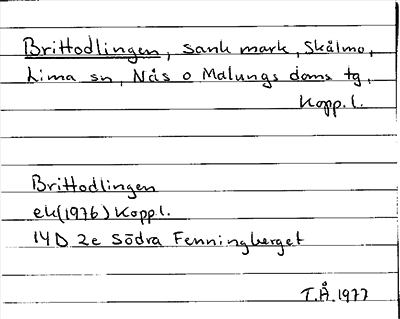 Brittodlingen, sank mark, Skålmo,
Lima sn, Nås o Malungs doms tg,
Kopp. l.
Brittodlingen
ek(1976) Kopp.l.
14D 2e Södra Fenningberget
T.Å. 1977